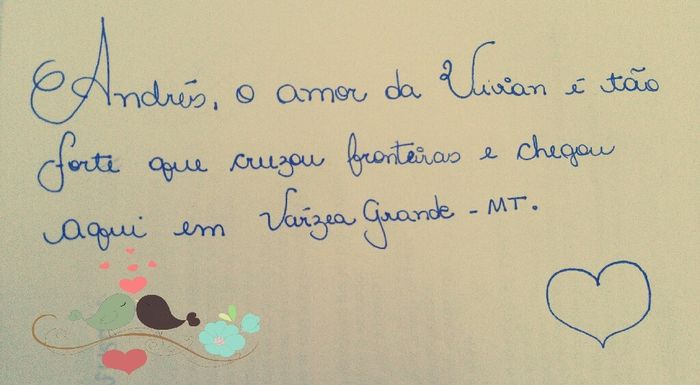 Andrés, o amor da Vivian é tão
forte que cruzou fronteiras e chegou
aqui em Várzea Grande - MT.